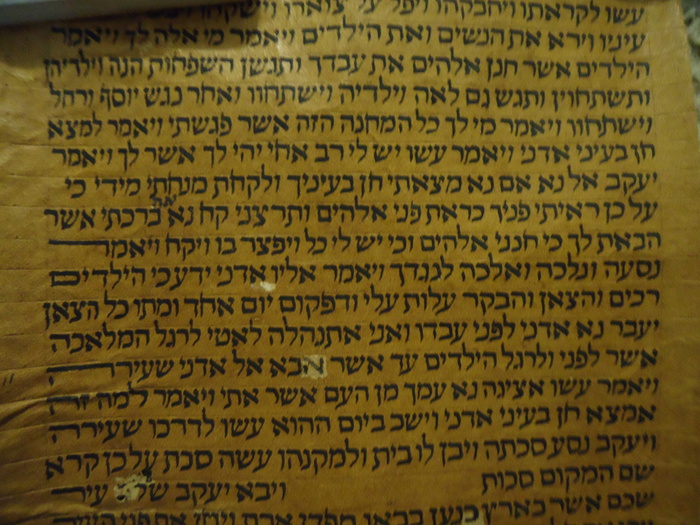 עשו לקראתו ויחבקהו ויפל על צוארו וישקהו
עיניו וירא את הנשים ואת הילדים ויאמר מי אלה לך ויאמר
הילדים אשר חנן אלהים את עבדך ותגשן השפחות הנה וילדיהן
ותשתחוין ותגש גם לאה וילדיה וישתחוו ואחר נגש יוסף ורחל
וישתחוו ויאמר מי לך כל המחנה הזה אשר פגשתי ויאמר למצא
חן בעיני אדני ויאמר עשו יש לי רב אחי יהי לך אשר לך ויאמר
יעקב אל נא אם נא מצאתי חן בעיניך ולקחת מנחתי מידי כי
על כן ראיתי פניך כראת פני אלהים ותרצני קח נא את ברכתי אשר
הבאת לך כי חנני אלהים וכי יש לי כל ויפצר בו ויקח ויאמר
נסעה ונלכה ואלכה לנגדך ויאמר אליו אדני ידע כי הילדים
רכים והצאן והבקר עלות עלי ודפקום יום אחד ומתו כל הצאן
יעבר נא אדני לפני עבדו ואני אתנהלה לאטי לרגל המלאכה
אשר לפני ולרגל הילדים עד אשר אבא אל אדני שעירה
ויאמר עשו אציגה נא עמך מן העם אשר אתי ויאמר למה זה
אמצא חן בעיני אדני וישב ביום ההוא עשו לדרכו שעירה
ויעקב נסע סכתה ויבן לו בית ולמקנהו עשה סכת על כן קרא
שם המקום סכות ויבא יעקב שלם עיר
שכם אשר בארץ כנען בבאו מפדן ארם ויחן את פני העיר